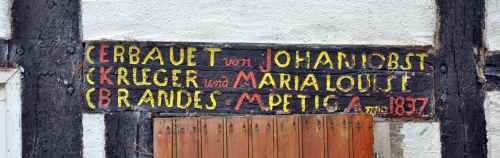 ERBAUET von JOHANJOBST
KRUEGER und MARIALOUISE
BRANDES M PETIG Anno 1837